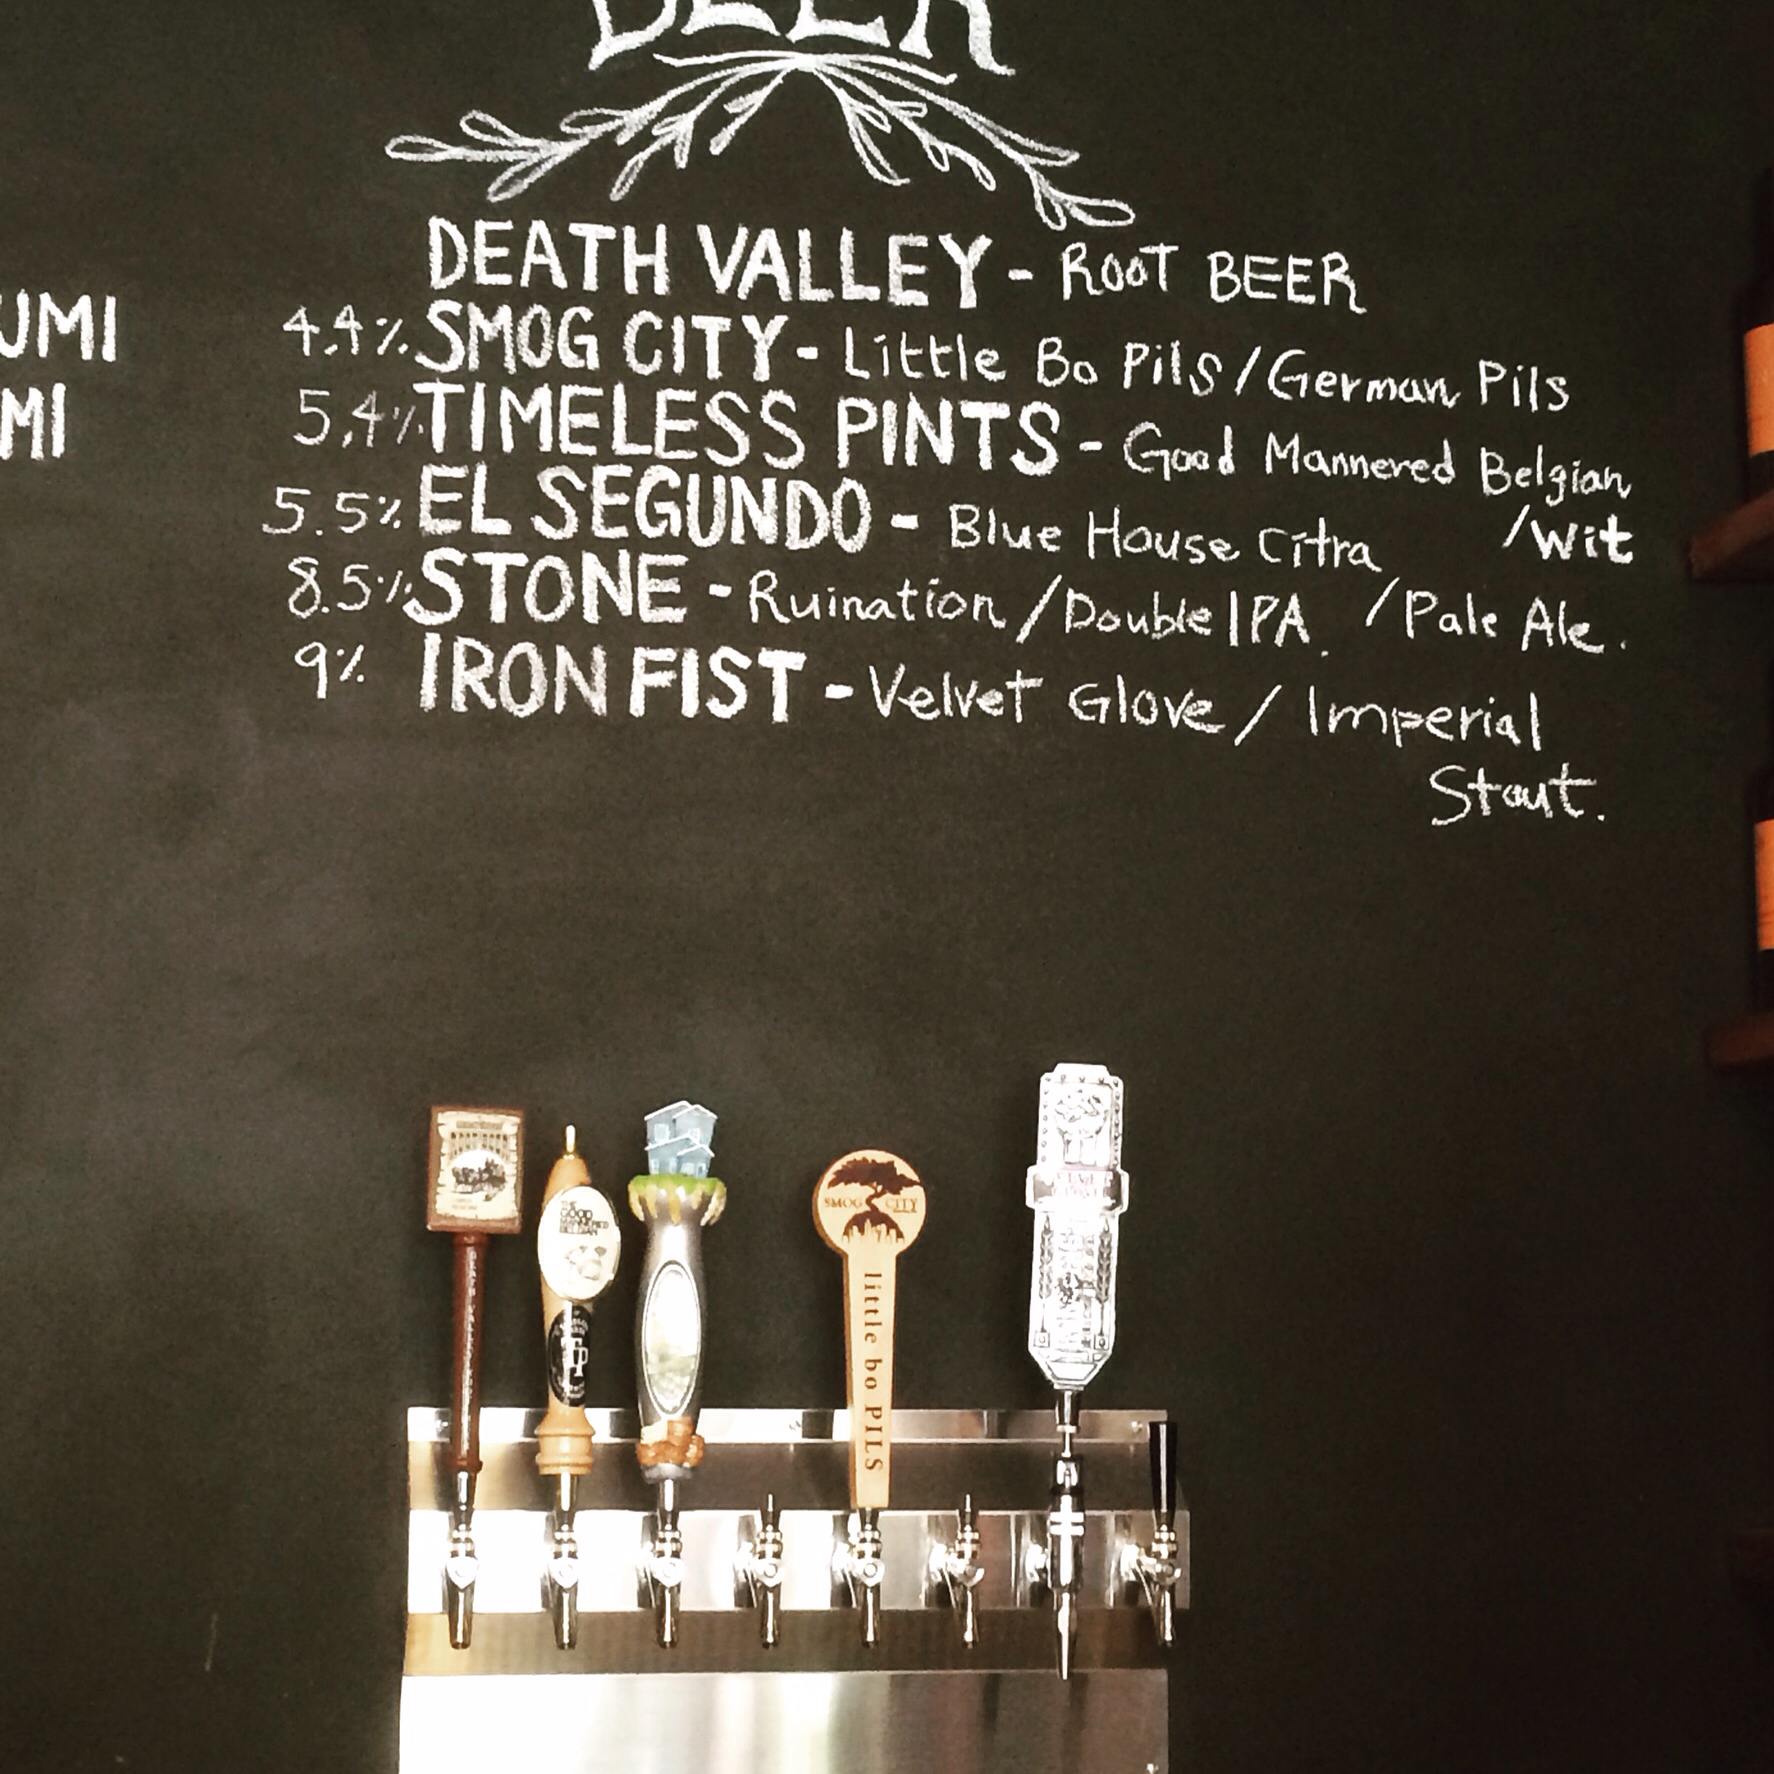 BEER
DEATH VALLEY - ROOT BEER
UMI
4.4% SMOG CITY - Little Bo Pils/German Pils
MI
5.4% TIMELESS PINTS - Good Mannered Belgian
/Wit
5.5% EL SEGUNDO - Blue House Citra
/Pale Ale.
8.5% STONE - Ruination/Double IPA.
9% IRON FIST - Velvet Glove/Imperial
Stout.
THE
GOOD
MANNERED
BELGIAN
TP
SMOG CITY
little bo PILS